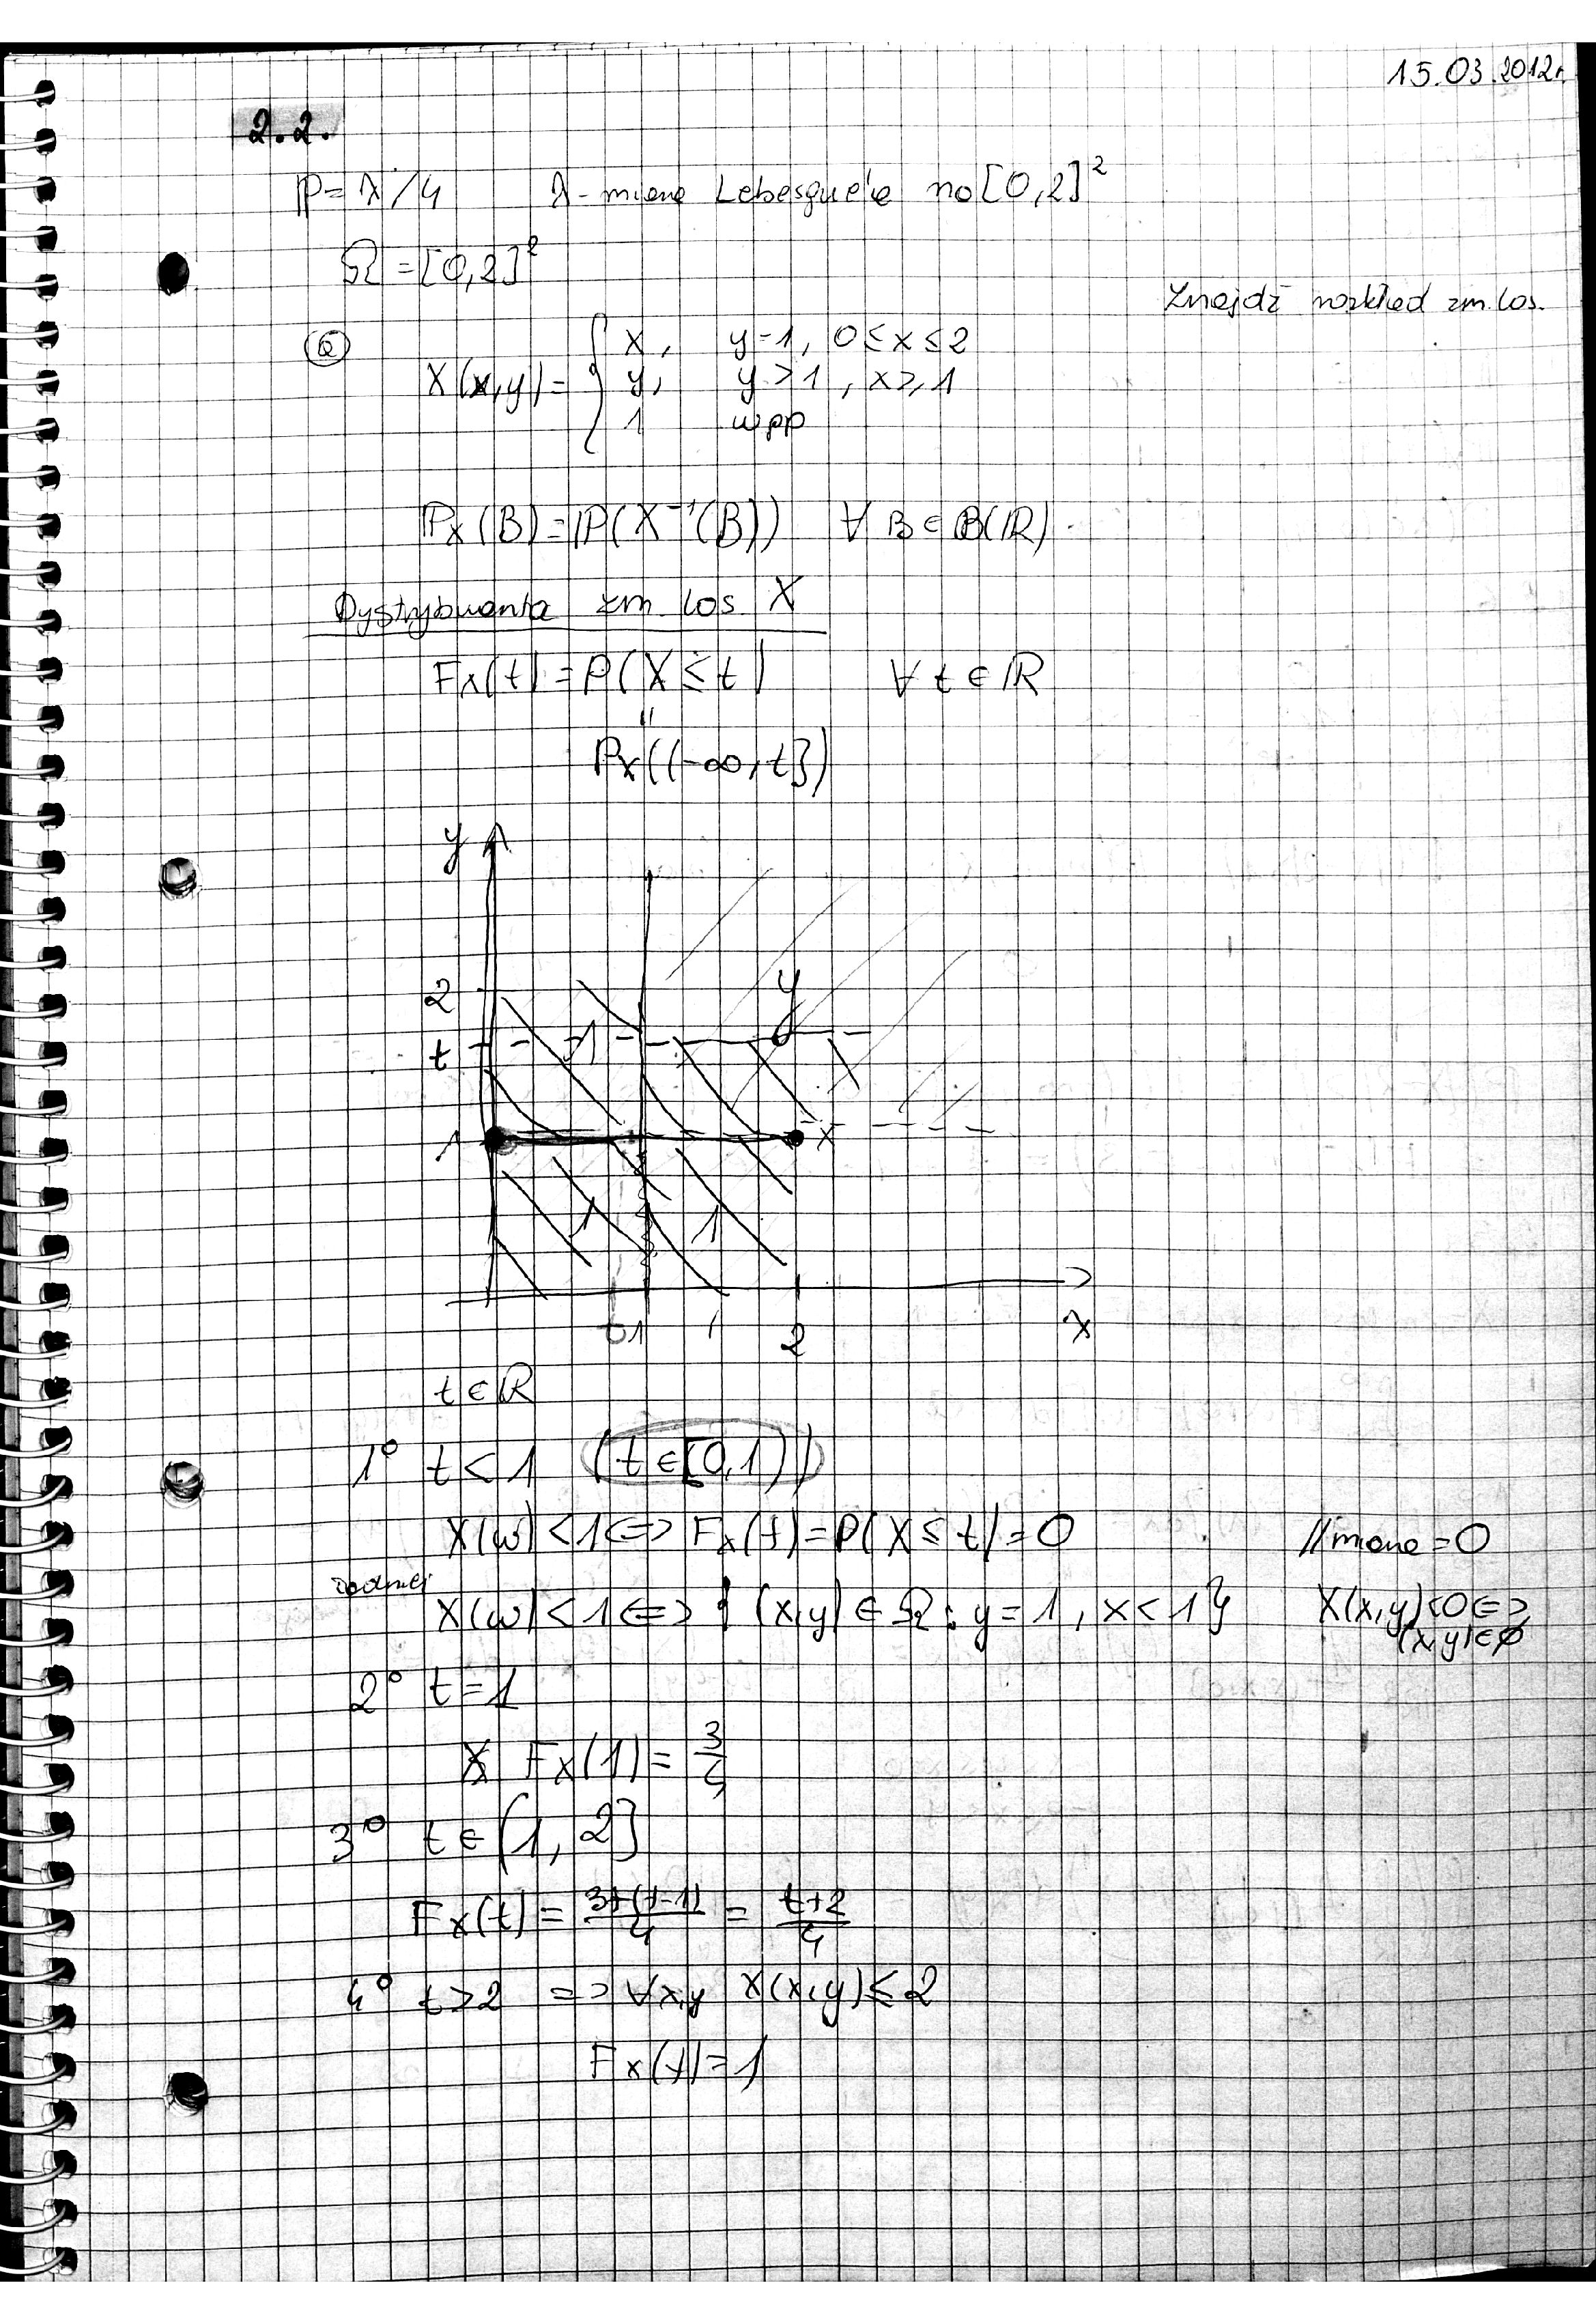 15.03.2012r.
2.2.
P = λ/4 λ - miara Lebesgue'a na [0,2]²
Ω = [0,2]²
Znajdź rozkład zm. los.
(a)
X(x,y) = { x, y=1, 0≤x≤2
y, y>1, x≥1
1 wpp
Px(B) = P(X⁻¹(B)) ∀ B ∈ B(R)
Dystrybuanta zm. los. X
Fx(t) = P(X ≤ t) ∀ t ∈ R
"
Px((-∞, t])
y
2 y
t 1
1 x
1 1
t 1 2 x
t ∈ R
1° t < 1 (t ∈ [0,1))
X(ω) < 1 <=> Fx(t) = P(X ≤ t) = 0 // miara = 0
ładniej
X(ω) < 1 <=> { (x,y) ∈ Ω : y = 1, x < 1 } X(x,y) < 0 <=>
(x,y) ∈ ∅
2° t = 1
Fx(1) = 3/4
3° t ∈ (1, 2]
Fx(t) = 3+(t-1)/4 = t+2/4
4° t > 2 => ∀x,y X(x,y) ≤ 2
Fx(t) = 1